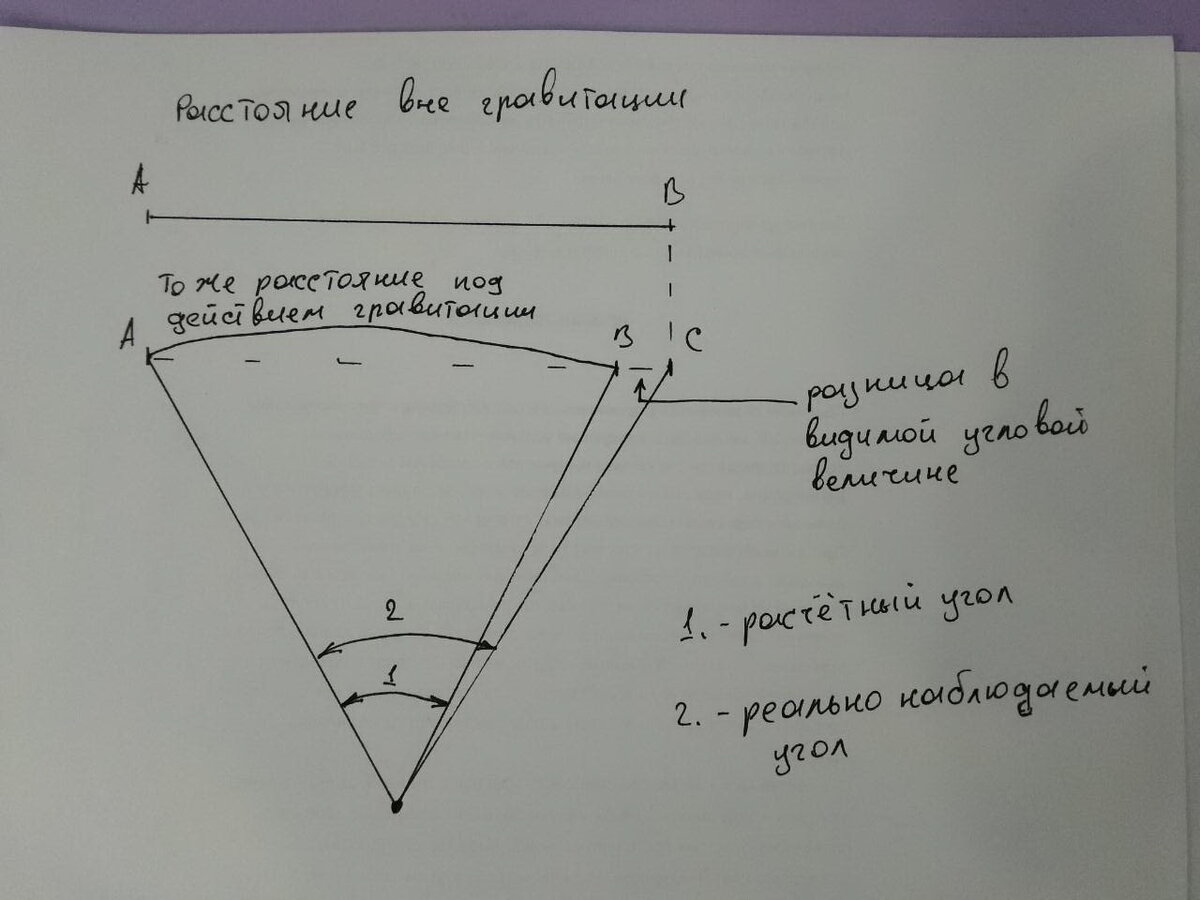 Расстояние вне гравитации
А
В
То же расстояние под
действием гравитации
А
В
С
разница в
видимой угловой
величине
2
1
1. - расчётный угол
2. - реально наблюдаемый
угол